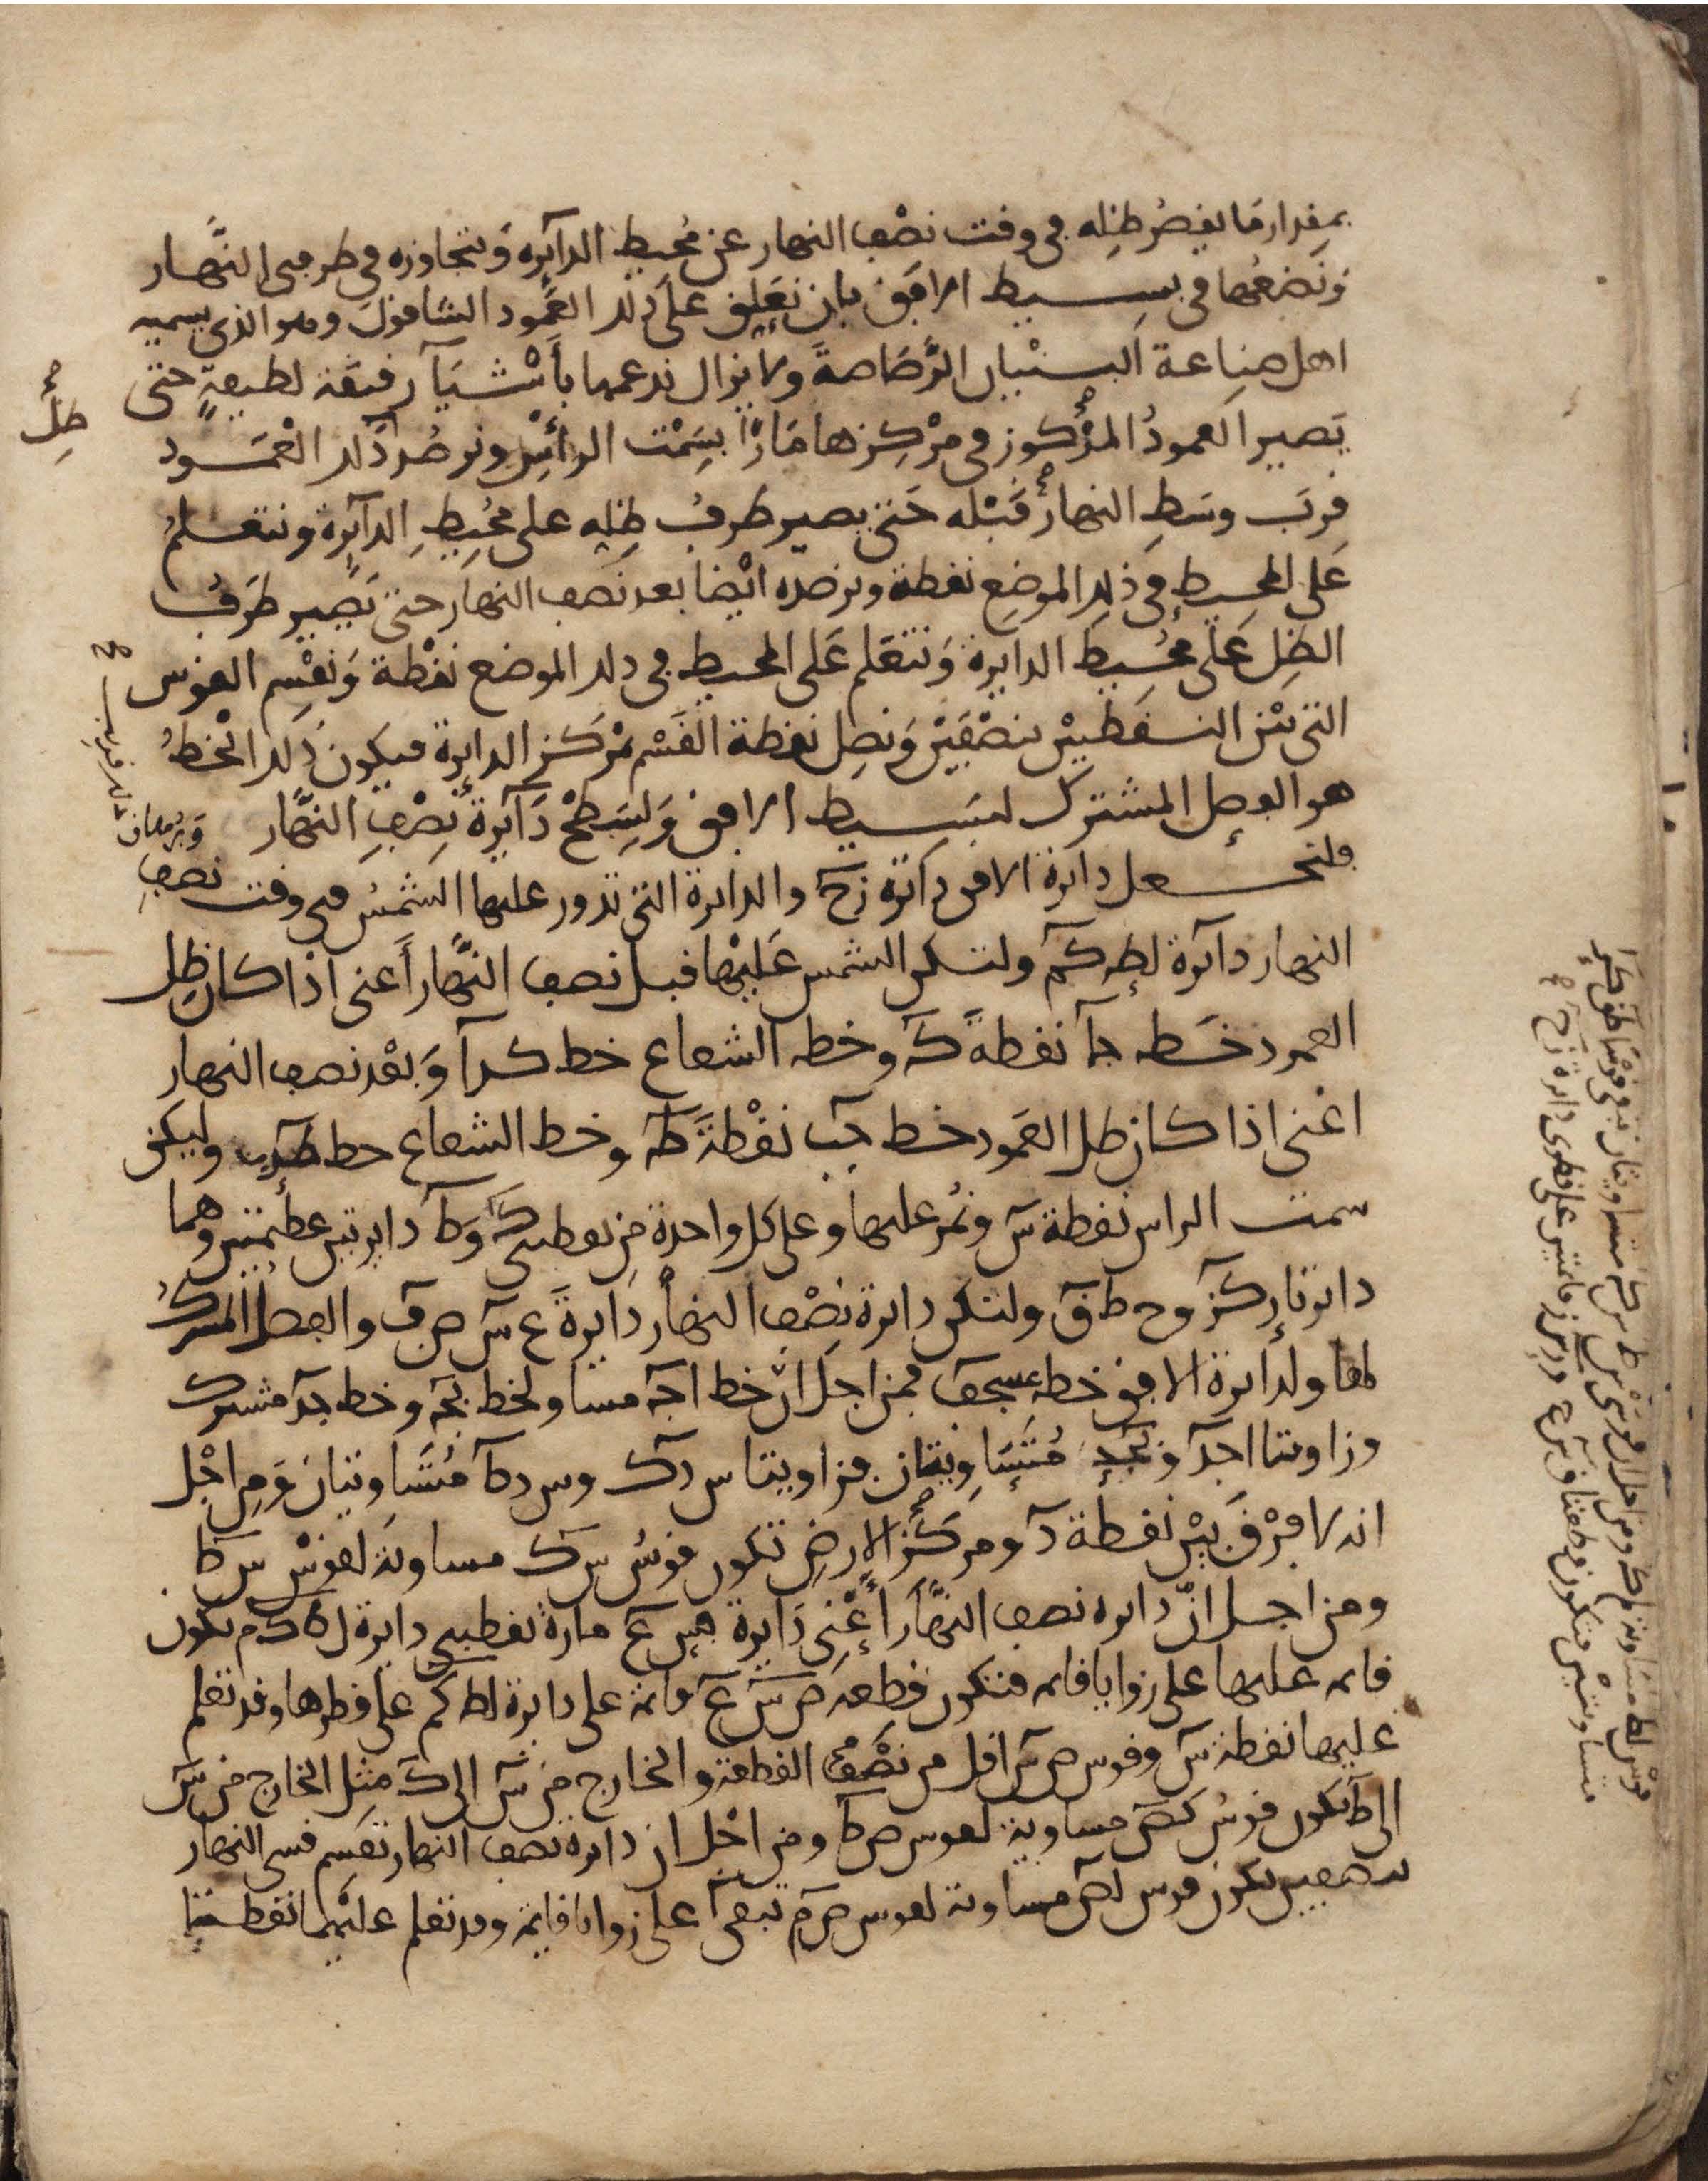 بمقدار ما يقصر ظله في وقت نصف النهار عن محيط الدآيره وتتجاوزه في طرفي النهار
ونضعها في بسيط الافق بان نعلق على ذلك العمود الشاقول وهو الذي يسميه
اهل صناعة البنيان الرصاصة ولا يزال ندعمها باشيآ رقيقة لطيفة حتى
يصير العمود المركوز في مركزها مارا بسمت الرأس ونرصد ذلك العمود
قرب وسط النهار قبله حتى يصير طرف ظله على محيط الدآيرة ونتعلم
على المحيط في ذلك الموضع نقطة ونرصده ايضا بعد نصف النهار حتى يصير طرف
الظل على محيط الدايرة ونتعلم على المحيط في ذلك الموضع نقطة ونقسم القوس
التي بين النقطتين بنصفين ونصل نقطة القسم بمركز الدايرة فيكون ذلك الخط
هو الفصل المشترك لبسيط الافق ولسطح دآيرة نصف النهار وبرهان ذلك
فلنجعل دايرة الافق دآيرة زح والدايرة التي تدور عليها الشمس في وقت نصف
النهار دآيرة لطكم ولتكن الشمس عليها قبل نصف النهار أعني اذا كان ظل
العمود خط جا نقطة ك وخط الشعاع خط كدا وبعد نصف النهار
اعني اذا كان ظل العمود خط جب نقطة ط وخط الشعاع خط طدب وليكن
سمت الراس نقطة س ونمر عليها وعلى كل واحدة من نقطتي ك وط دايرتين عظيمتين وهما
دايرتا ركز وح طق ولتكن دايرة نصف النهار دايرة ع س ص ف والفصل المشترك
لها ولدايرة الافق خط عجف فمن اجل ان خط اجه مساو لخط بجه وخط جد مشترك
وزاويتا اجد وبجد متساويتان فزاويتا س دك وس دط متساويتان ومن اجل
انه لا فرق بين نقطة د ومركز الارض تكون قوس سك مساوية لقوس س ط
ومن اجل ان دايرة نصف النهار أعني دايرة ص س ع مارة بقطبي دايرة لطكم تكون
قايمه عليها على زوايا قايمه فتكون قطعه ص س ع قايمة على دايرة لطكم على قطرها وقد تعلم
عليها نقطة س وقوس ص س اقل من نصف القطعة والخارج من س الى ك مثل الخارج من س
الى ط تكون قوس كص مساوية لقوس ص ط ومن اجل ان دايرة نصف النهار تقسم قسي النهار
بنصفين تكون قوس لص مساوية لقوس ص م تبقى على زوايا قايمة وقد تعلم عليهما نقطتا
ظل
قوس لط مساوية
متساويتين فتكون